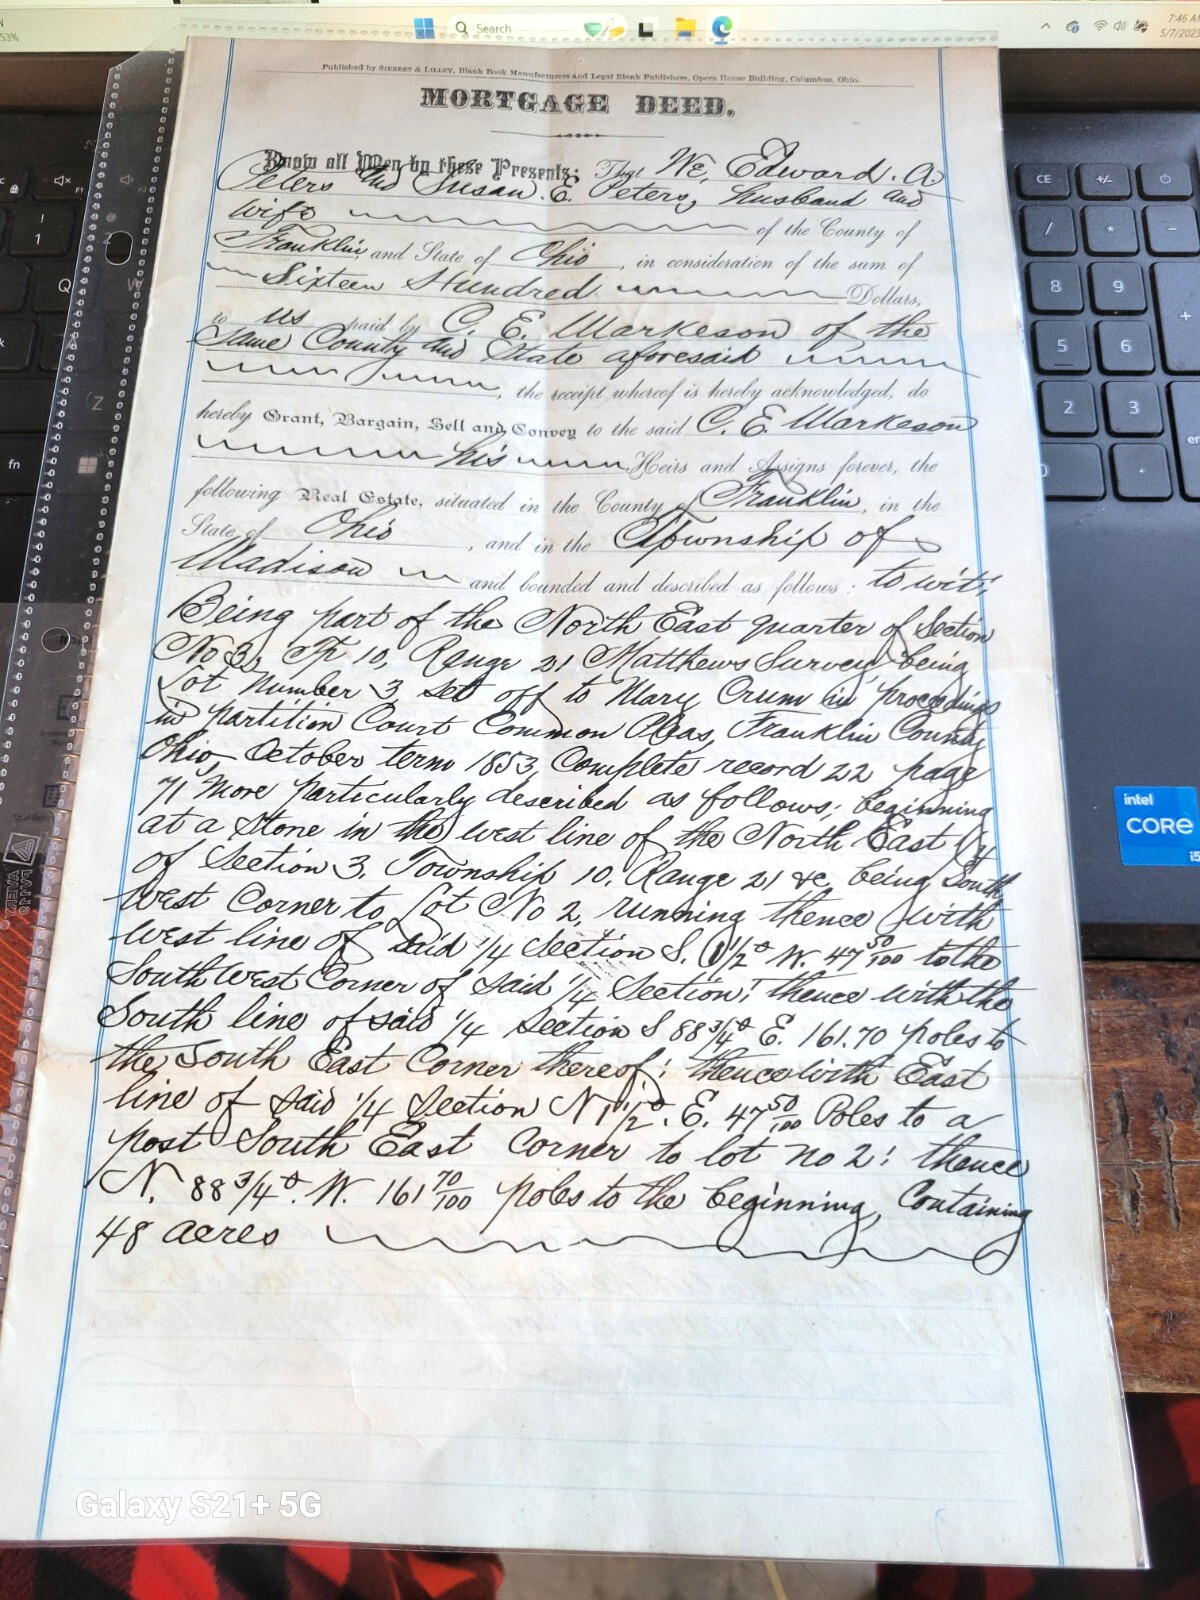 Search
7:46 AM
5/7/2025
53%
Published by SIEBERT & LILLEY, Blank Book Manufacturers and Legal Blank Publishers, Opera House Building, Columbus, Ohio.
MORTGAGE DEED.
Know all Men by these Presents: That We, Edward. A.
Peters and Susan. E. Peters, husband and
wife of the County of
Franklin and State of Ohio, in consideration of the sum of
Sixteen Hundred Dollars,
to us paid by C. E. Markeson of the
Same County and State aforesaid
, the receipt whereof is hereby acknowledged, do
hereby Grant, Bargain, Sell and Convey to the said C. E. Markeson
his Heirs and Assigns forever, the
following Real Estate, situated in the County of Franklin, in the
State of Ohio, and in the Township of
Madison and bounded and described as follows: to wit;
Being part of the North East quarter of Section
No 3, Tp 10, Range 21 Matthews Survey being
Lot Number 3 set off to Mary Crum in proceedings
in partition Court Common Pleas, Franklin County
Ohio, October term 1853, Complete record 22 page
71 More particularly described as follows; beginning
at a Stone in the west line of the North East 1/4
of Section 3, Township 10, Range 21 &c, being South
West Corner to Lot No 2, running thence with
west line of said 1/4 Section S. 1 1/2° W. 47 50/100 to the
South West Corner of said 1/4 Section; thence with the
South line of said 1/4 Section S 88 3/4° E. 161.70 poles to
the South East Corner thereof; thence with East
line of said 1/4 Section N 1 1/2°. E. 47 50/100 Poles to a
post South East Corner to lot no 2; thence
N. 88 3/4°. W. 161 70/100 poles to the beginning, Containing
48 acres
CE
+/-
8
9
5
6
2
3
0
intel
CORE
i5
fn
Z
Q
1
AVERY
Galaxy S21+ 5G